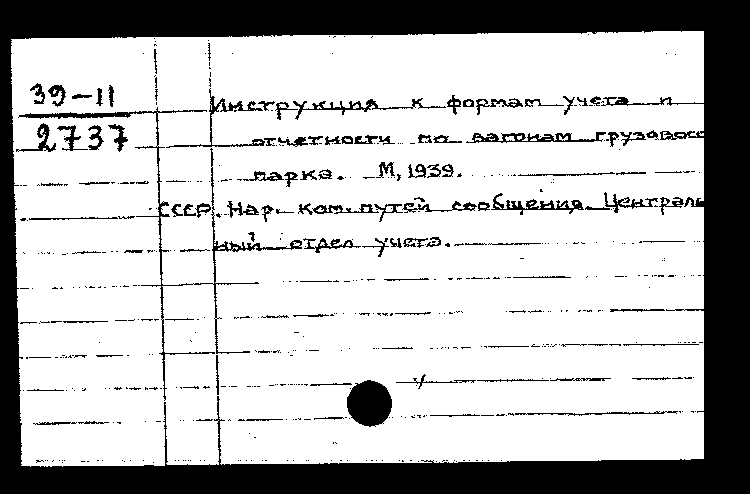 39-11
2737
Инструкция к формам учета и
отчетности по вагонам грузового
парка. М, 1939.
СССР. Нар. ком. путей сообщения. Централь
ный отдел учета.